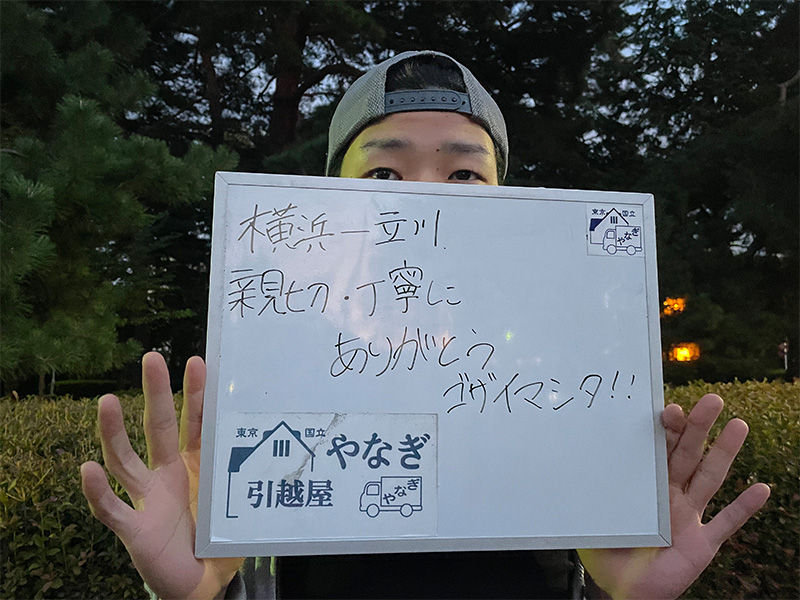 横浜ー立川
東京 国立
やなぎ
親切・丁寧に
ありがとう
ゴザイマシタ!!
東京 国立
やなぎ
引越屋
やなぎ